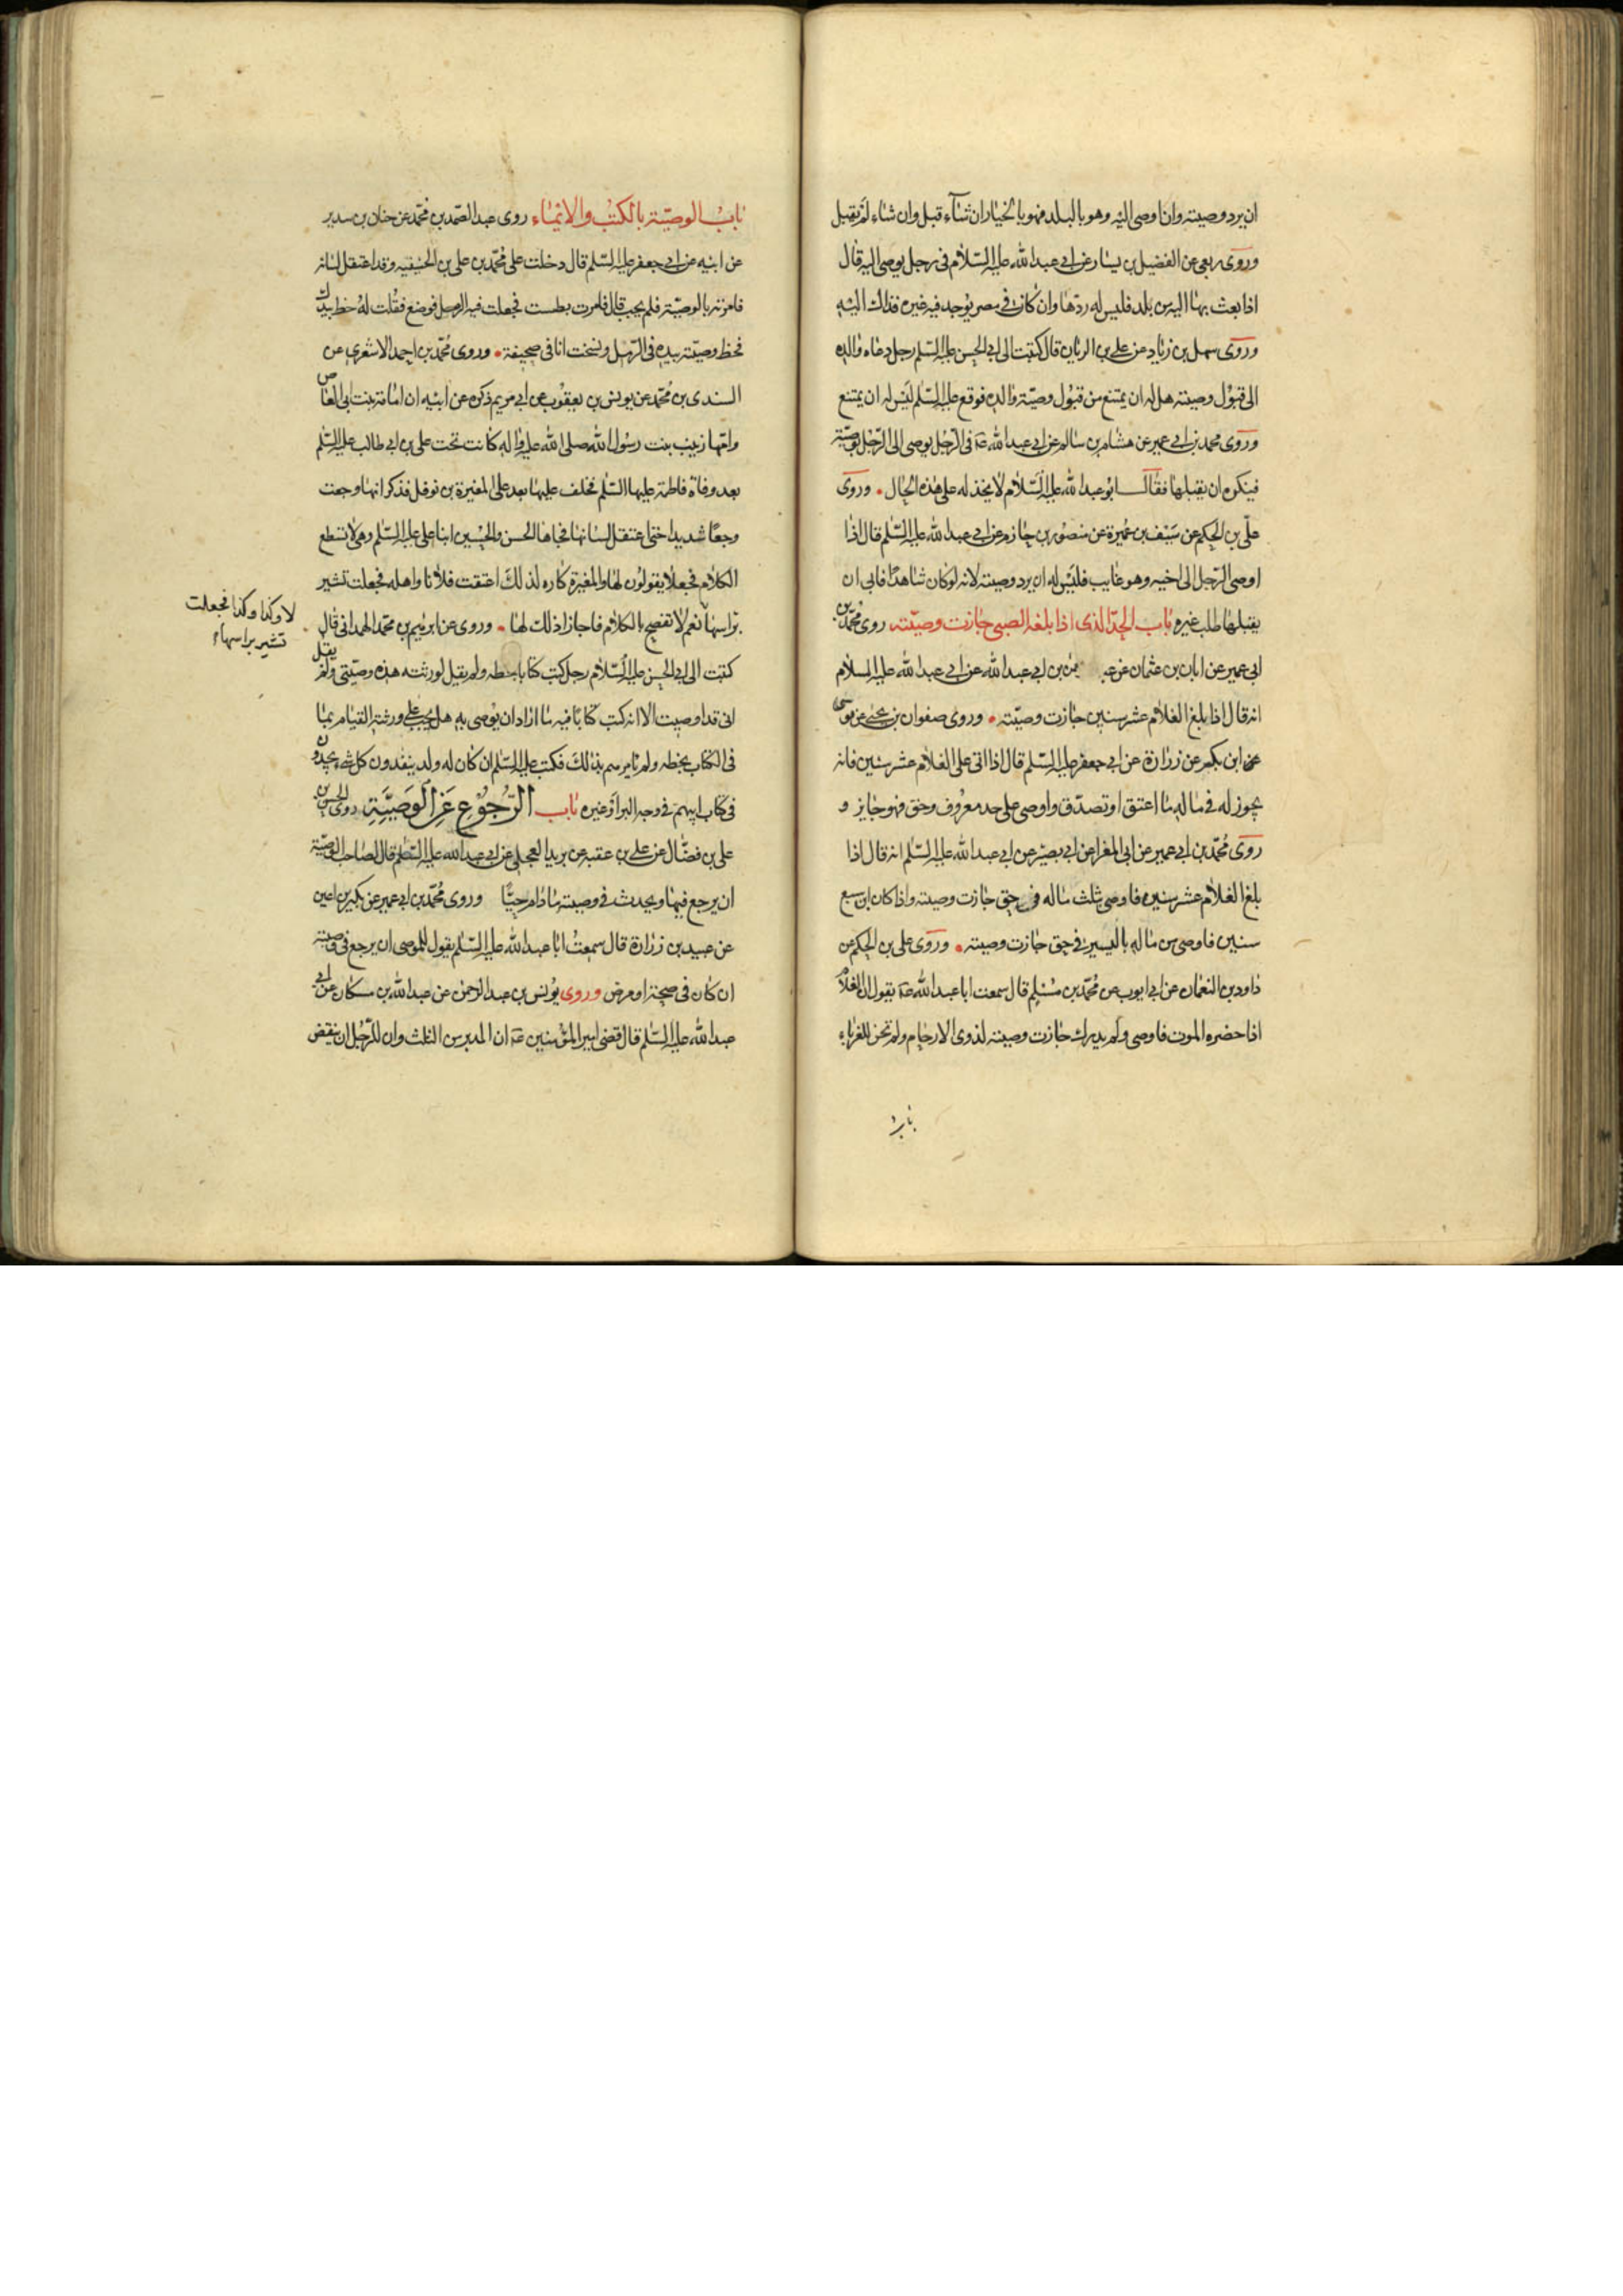 ان يرد وصيته وان اوصى اليه وهو بالبلد فهو بالخيار ان شآء قبل وان شاء لم يقبل
وروى ربعى عن الفضيل بن يسار عن ابى عبدالله عليه السلام فى رجل يوصى اليه قال
اذا بعث بها اليه من بلد فليس له ردها وان كان فى مصر يوجد فيه غيره فذاك اليه
وروى سهل بن زياد عن على بن الريان قال كتبت الى ابى الحسن عليه السلم رجل دعاه والده
الى قبول وصيته هل له ان يمتنع من قبول وصية والده فوقع عليه السلم ليس له ان يمتنع
وروى محمد بن ابى عمير عن هشام بن سالم عن ابى عبدالله عه فى الرجل يوصى الى الرجل بوصية
فيكره ان يقبلها فقال ابو عبدالله عليه السلام لا يخذله على هذه الحال وروى
على بن الحكم عن سيف بن عميرة عن منصور بن حازم عن ابى عبدالله عليه السلم قال اذا
اوصى الرجل الى اخيه وهو غايب فليس له ان يرد وصيته لانه لو كان شاهدا فابى ان
يقبلها طلب غيره باب الحد الذى اذا بلغه الصبى جازت وصيته روى محمد بن
ابى عمير عن ابان بن عثمان عن عبد من بن ابى عبدالله عن ابى عبدالله عليه السلام
انه قال اذا بلغ الغلام عشر سنين جازت وصيته وروى صفوان بن يحيى عن موسى
عن ابن بكير عن زرارة عن ابى جعفر عليه السلم قال اذا اتى على الغلام عشر سنين فانه
يجوز له فى ماله ما اعتق او تصدق واوصى على حد معروف وحق فهو جايز و
روى محمد بن ابى عمير عن ابى المغرا عن ابى بصير عن ابى عبدالله عليه السلم انه قال اذا
بلغ الغلام عشر سنين فاوصى بثلث ماله فى حق جازت وصيته واذا كان ابن سبع
سنين فاوصى من ماله باليسير فى حق جازت وصيته وروى على بن الحكم عن
داود بن النعمان عن ابى ايوب عن محمد بن مسلم قال سمعت ابا عبدالله عه يقول ان الغلام
اذا حضره الموت فاوصى ولم يدرك جازت وصيته لذوى الارحام ولم تجز للغرباء
باب
باب الوصية بالكتب والايماء روى عبدالصمد بن محمد عن حنان بن سدير
عن ابيه عن ابى جعفر عليه السلم قال دخلت على محمد بن على بن الحنفيه وقد اعتقل لسانه
فامرته بالوصية فلم يجب قال فامرت بطست فجعلت فيه الرمل فوضع فقلت له خط بيدك
فخط وصيته بيده فى الرمل ونسخت انا فى صحيفة وروى محمد بن احمد الاشعرى عن
السندى بن محمد عن يونس بن يعقوب عن ابى مريم ذكره عن ابيه ان امامة بنت ابى العاص
وامها زينب بنت رسول الله صلى الله عليه واله كانت تحت على بن ابى طالب عليه السلم
بعد وفاة فاطمة عليها السلم فخلف عليها بعد على المغيرة بن نوفل فذكر انها وجعت
وجعا شديدا حتى اعتقل لسانها فجاءها الحسن والحسين ابنا على عليه السلم وهى لا تستطع
الكلام فجعلا يقولون لها والمغيرة كاره لذلك اعتقت فلانا واهله فجعلت تشير
براسها نعم لا تفصح بالكلام فاجاز اذلك لها وروى عن ابرهيم بن محمد الهمدانى قال
لا وكذا وكذا فجعلت
تشير براسها
كتبت الى ابى الحسن عليه السلام رجل كتب كتابا بخطه ولم يقل لورثته هذه وصيتى ولم يقل
انى قد اوصيت الا انه كتب كتابا فيه ما اراد ان يوصى به هل يجب على ورثته القيام بما
فى الكتاب بخطه ولم يامرهم بذلك فكتب عليه السلم ان كان له ولد ينفذون كل شىء يجدون
فى كتاب ابيهم فى وجه البر او غيره باب الرجوع عن الوصية روى الحسن بن
على بن فضال عن على بن عقبه عن بريد العجلى عن ابى عبدالله عليه السلم قال لصاحب الوصية
ان يرجع فيها ويحدث فى وصيته ما دام حيا وروى محمد بن ابى عمير عن بكير بن اعين
عن عبيد بن زرارة قال سمعت ابا عبدالله عليه السلم يقول للموصى ان يرجع فى وصيته
ان كان فى صحة او مرض وروى يونس بن عبدالرحمن عن عبدالله بن مسكان عن ابى
عبدالله عليه السلم قال قضى امير المؤمنين عه ان المدبر من الثلث وان للرجل ان ينقض